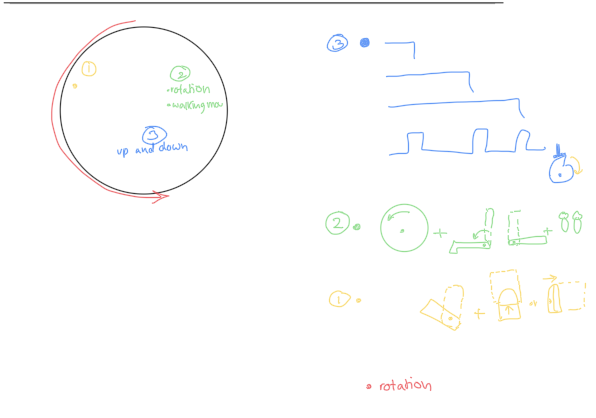 ①
②
• rotation
• walking mou
③
up and down
③ •
② •
+
+
① •
+
+
• rotation